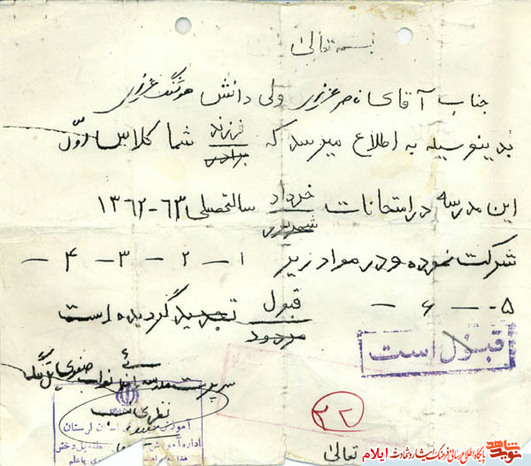 بسمه تعالی
جناب آقای ناصر عزیزی ولی دانش هوشنگ عزیزی
بدینوسیله به اطلاع میرسد که فرزند شما کلاس اول
برادر
این مدرسه در امتحانات خرداد سالتحصیلی ۶۳-۱۳۶۲
شهریور
شرکت نموده و در مواد زیر ۱ - ۲ - ۳ - ۴ -
۵ - ۶ - قبول تجدید گردیده است
مردود
قبول است
سرپرست مدرسه نواب صفوی
نظری
استان لرستان
اداره آموزش
پل دختر
۲۲
تعالی
پایگاه اطلاع رسانی فرهنگ ایثار و شهادت ایلام
نوید شاهد